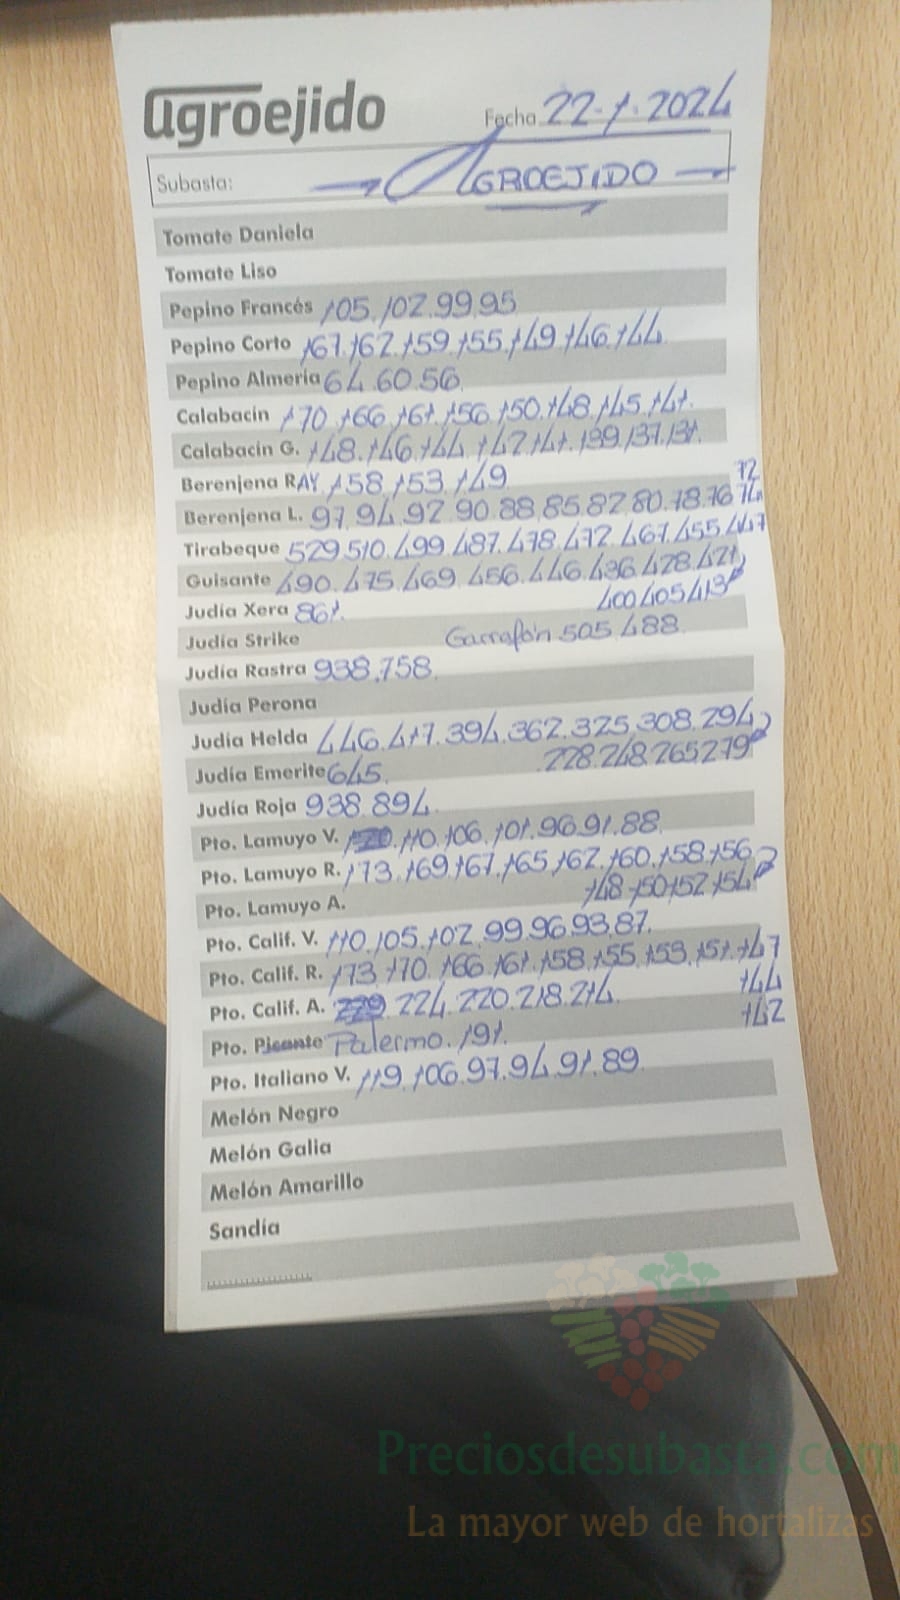 agroejido
Fecha 22-1-2024
Subasta: AGROEJIDO
Tomate Daniela
Tomate Liso
Pepino Francés 105.102.99.95
Pepino Corto 167.162.159.155.149.146.144
Pepino Almería 64.60.56
Calabacín 170.166.161.156.150.148.145.141.
Calabacín G. 148.146.144.142.141.139.137.131.
Berenjena RAY 158.153.149
72
Berenjena L. 97.94.92.90.88.85.82.80.78.76 74
Tirabeque 529.510.499.487.478.472.467.455.447
Guisante 490.475.469.456.446.436.428.421
Judía Xera 861. 400.405.413
Judía Strike Garrafón 505.488
Judía Rastra 938.758.
Judía Perona
Judía Helda 446.417.394.362.325.308.294
Judía Emerite 645. 228.248.265.279
Judía Roja 938.894.
Pto. Lamuyo V. 110.106.101.96.91.88
Pto. Lamuyo R. 173.169.167.165.162.160.158.156
Pto. Lamuyo A. 148-150.152.154
Pto. Calif. V. 110.105.102.99.96.93.87.
Pto. Calif. R. 173.170.166.161.158.155.153.151.147
144
Pto. Calif. A. 224.220.218.214.
142
Pto. Picante Palermo. 191.
Pto. Italiano V. 119.106.97.94.91.89
Melón Negro
Melón Galia
Melón Amarillo
Sandía
Preciosdesubasta.com
La mayor web de hortalizas